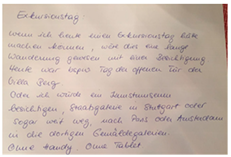 Exkursionstag
wenn ich heute einen Exkursionstag hätte
machen können, wäre dies eine lange
Wanderung gewesen mit einer Besichtigung
Heute war Tag der offenen Tür der
Villa Berg
Oder ich würde ein Kunstmuseum
besichtigen, Staatsgalerie in Stuttgart oder
sogar weit weg, nach Paris oder Amsterdam
in die dortigen Gemäldegalerien.
Ohne Handy. Ohne Tablet